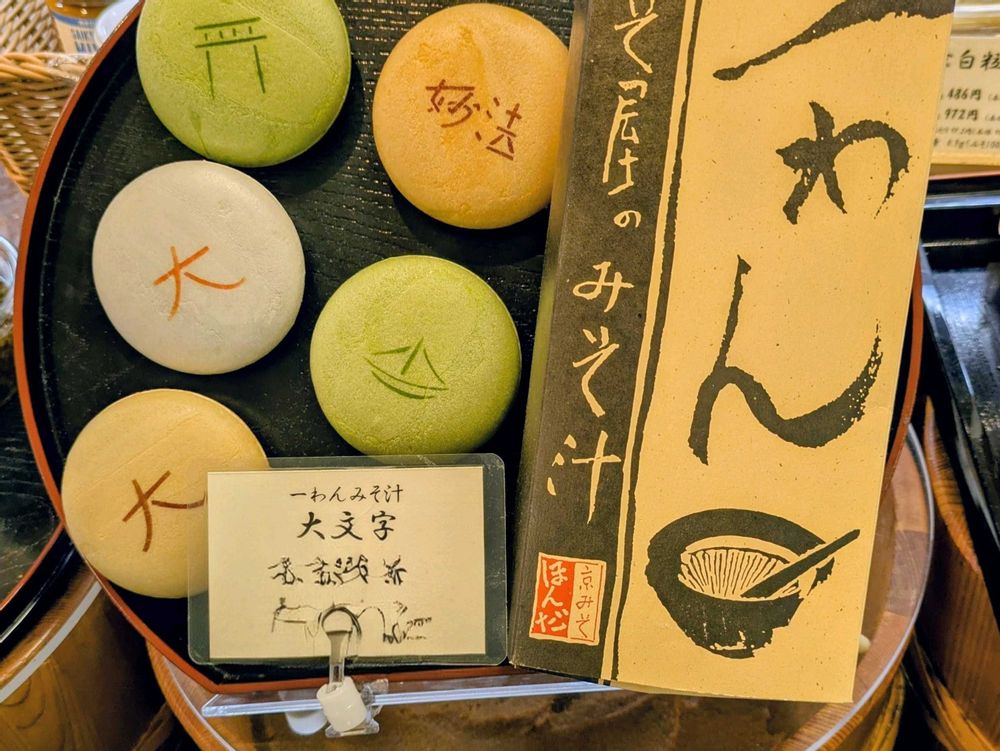 妙法
大
大
一わんみそ汁
大文字
そ屋のみそ汁
一わん
京みそ
ほんだ
白粒
486円
972円